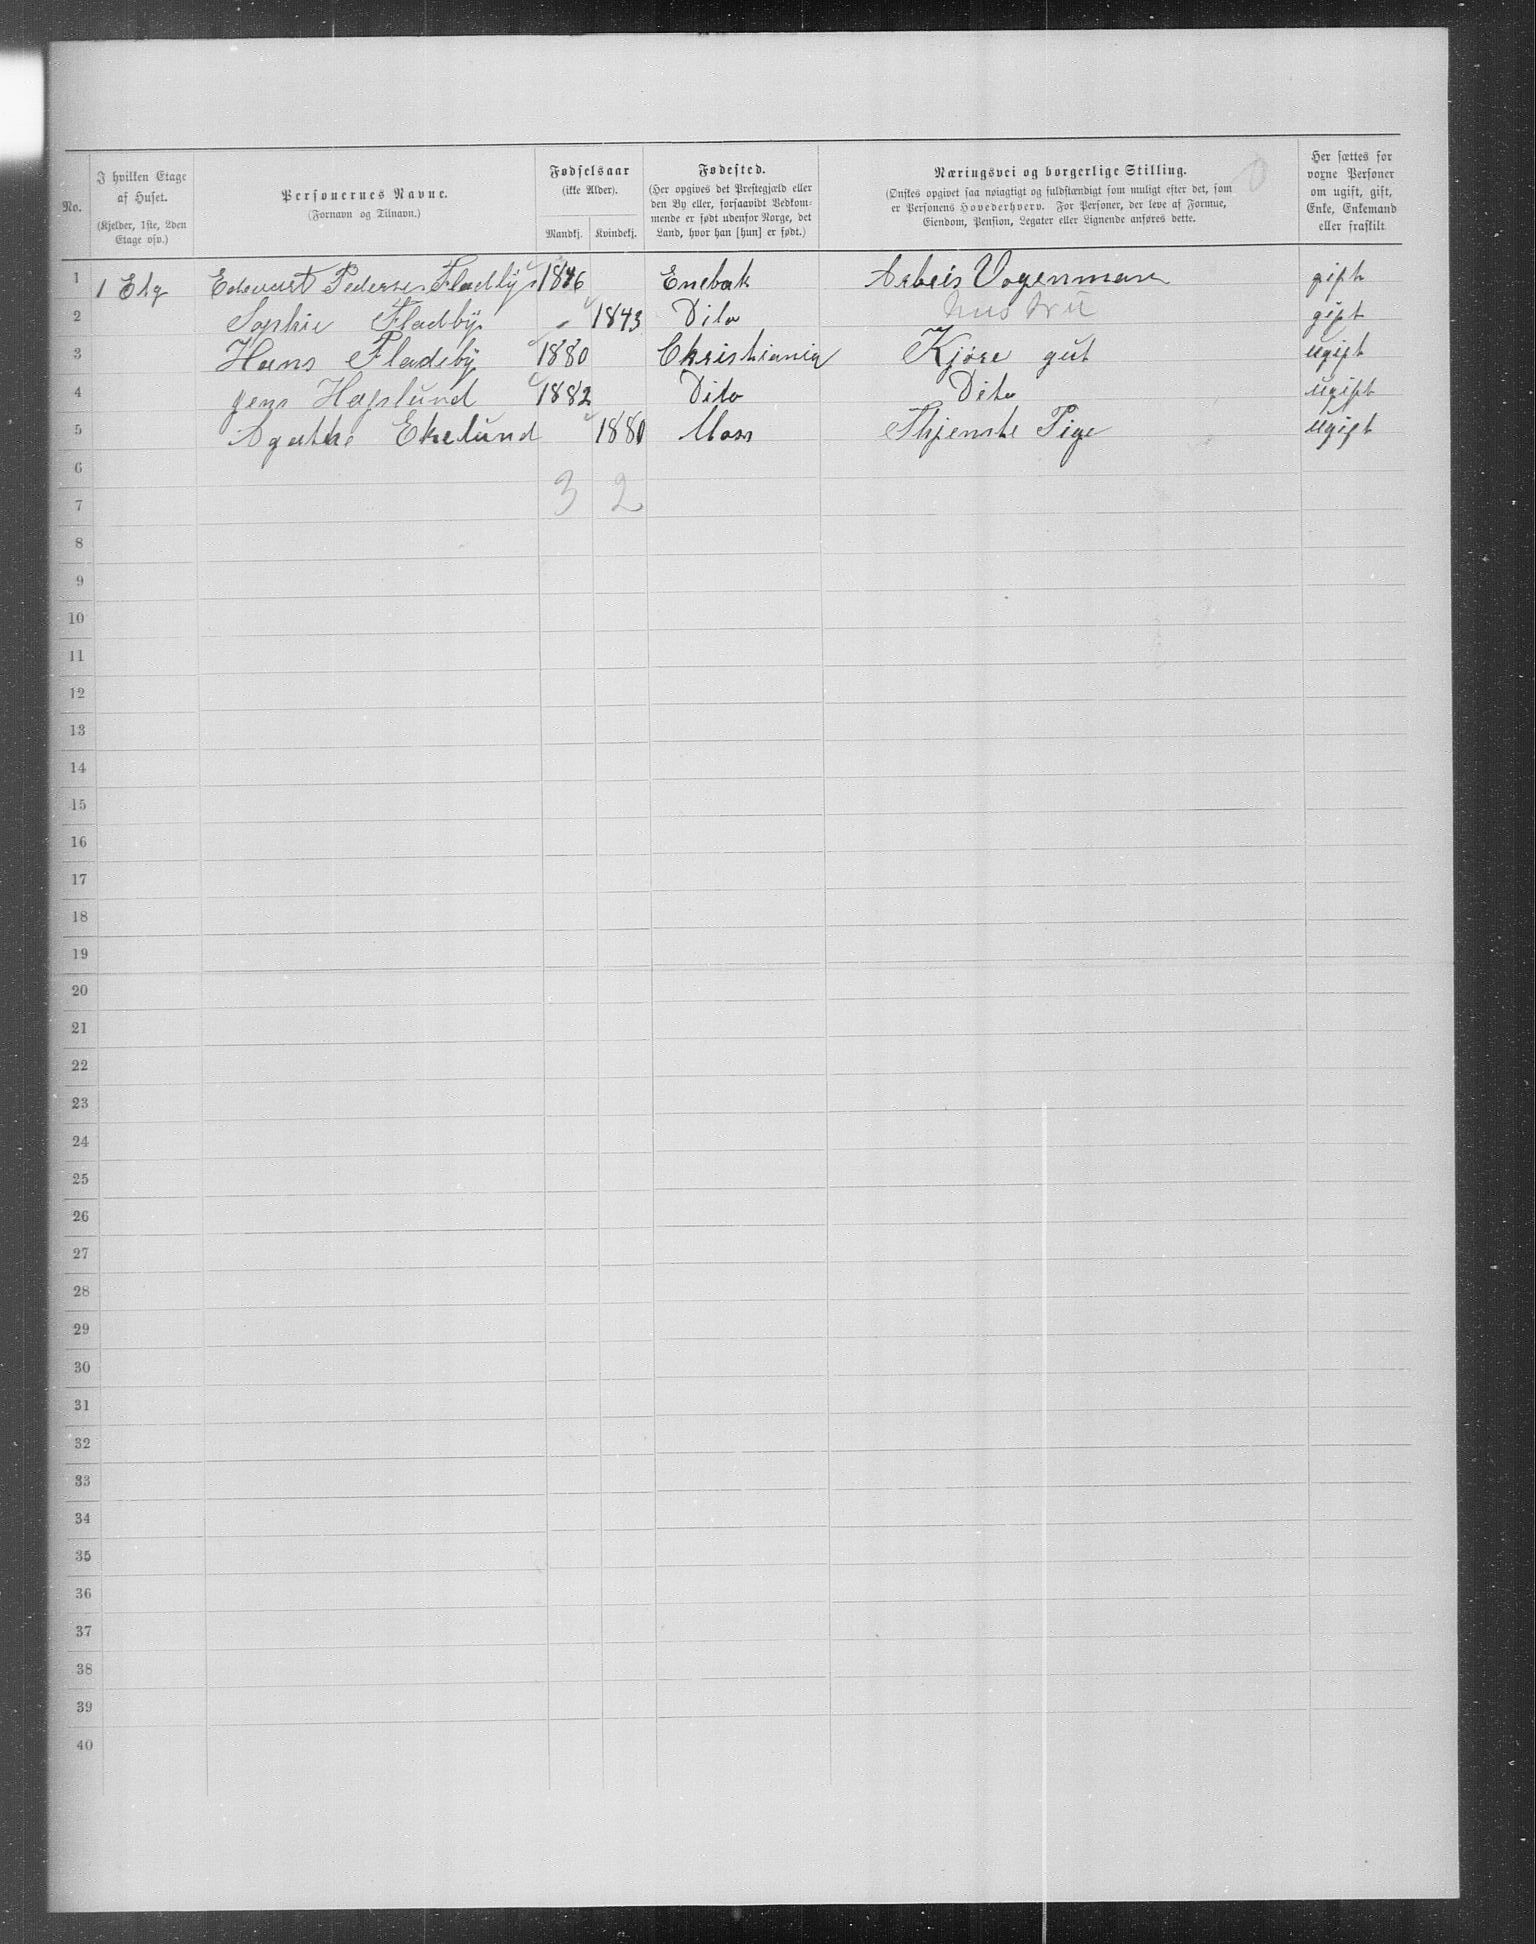 No.
I hvilken Etage af Huset.
(Kjelder, 1ste, 2den Etage osv.)
Personernes Navne.
(Fornavn og Tilnavn.)
Fødselsaar
(ikke Alder).
Mandkj.
Kvindekj.
Fødested.
(Her opgives det Prestegjæld eller den By eller, forsaavidt Vedkommende er født udenfor Norge, det Land, hvor han [hun] er født.)
Næringsvei og borgerlige Stilling.
(Ønskes opgivet saa nøiagtigt og fuldstændigt som muligt efter det, som er Personens Hovederhverv. For Personer, der leve af Formue, Eiendom, Pension, Legater eller Lignende anføres dette.
0
Her sættes for voxne Personer om ugift, gift, Enke, Enkemand eller fraskilt
1 1 Etg Edevart Pedersen Fladby 1846 Enebak Arbeis Vogenman gift
2 Sophie Fladby „ 1843 Dito hustru gift
3 Hans Fladeby 1880 Christiania Kjøre gut ugift
4 jens Hapslund 1882 Dito Dito ugift
5 Agathe Ekelund 1880 Moss Thjenste Pige ugift
6
3 2
7
8
9
10
11
12
13
14
15
16
17
18
19
20
21
22
23
24
25
26
27
28
29
30
31
32
33
34
35
36
37
38
39
40